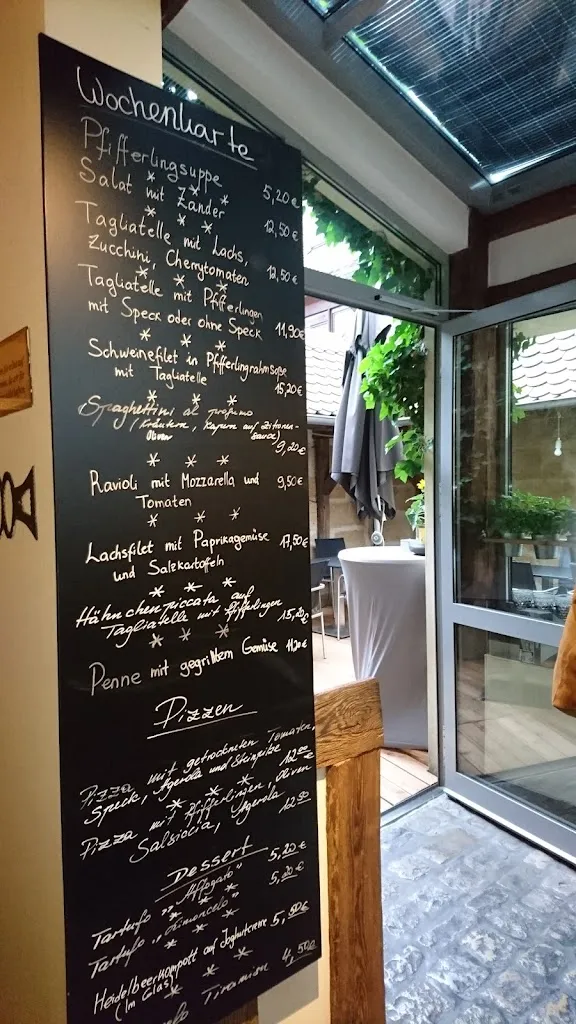 Wochenkarte
Pfifferlingsuppe 5,20€
Salat mit Zander 12,50€
Tagliatelle mit Lachs,
Zucchini, Cherrytomaten 12,50€
Tagliatelle mit Pfifferlingen
mit Speck oder ohne Speck 11,90€
Schweinefilet in Pfifferlingrahmsoße
mit Tagliatelle 15,20€
Spaghettini al profumo
(Kräutern, Kapern auf Zitronen-
Oliven sauce)
9,20€
Ravioli mit Mozzarella und 9,50€
Tomaten
Lachsfilet mit Paprikagemüse 17,50€
und Salzkartoffeln
Hähnchenpiccata auf
Tagliatelle mit Pfifferlingen 15,20€
Penne mit gegrilltem Gemüse 11,20€
Pizzen
Pizza mit getrockneten Tomaten,
Speck, Agerola und Steinpilze 12,00€
Pizza mit Pfifferlingen, Oliven
Salsiccia, Agerola 12,50
Dessert
Tartufo "Affogato" 5,20€
Tartufo "Limoncelo" 5,20€
Heidelbeerkompott auf Joghurtcreme 5,50€
(Im Glas)
Tiramisu 4,50€